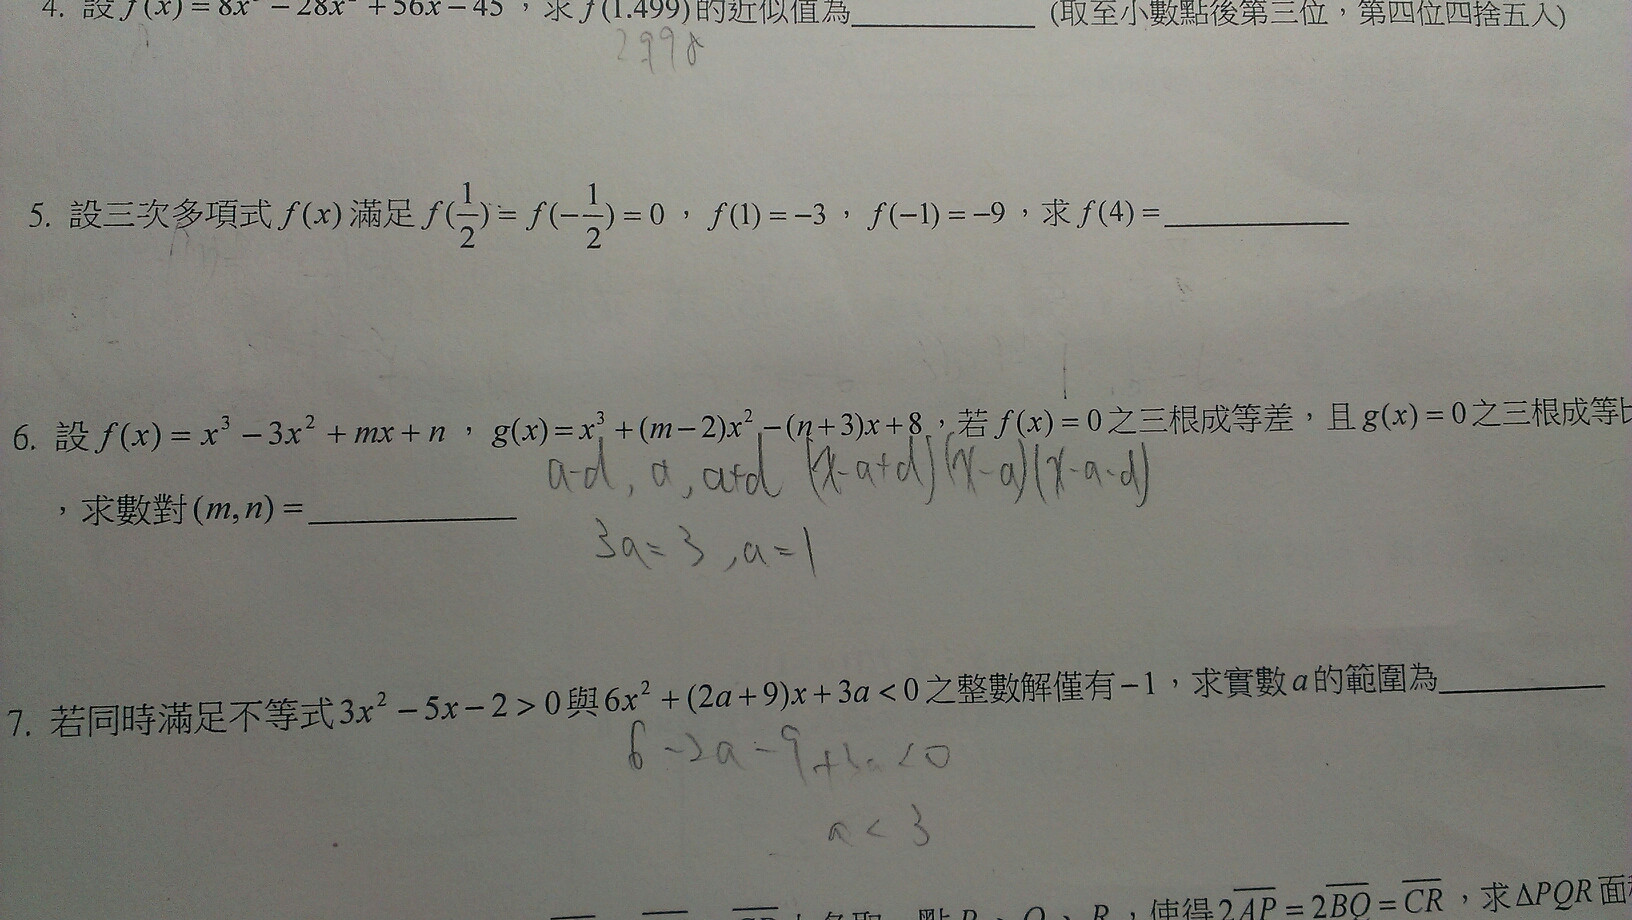 4. 設 f(x) = 8x³ − 28x² + 56x − 45，求 f(1.499) 的近似值為__________ (取至小數點後第三位，第四位四捨五入)
2998
5. 設三次多項式 f(x) 滿足 f(1/2) = f(−1/2) = 0，f(1) = −3，f(−1) = −9，求 f(4) = __________
6. 設 f(x) = x³ − 3x² + mx + n，g(x) = x³ + (m − 2)x² − (n + 3)x + 8，若 f(x) = 0 之三根成等差，且 g(x) = 0 之三根成等比
a-d, a, a+d (x-a+d)(x-a)(x-a-d)
，求數對 (m, n) = __________
3a = 3, a = 1
7. 若同時滿足不等式 3x² − 5x − 2 > 0 與 6x² + (2a + 9)x + 3a < 0 之整數解僅有 −1，求實數 a 的範圍為__________
6 - 2a - 9 + 3a < 0
a < 3
點 P、Q、R，使得 2AP = 2BQ = CR，求 ΔPQR 面